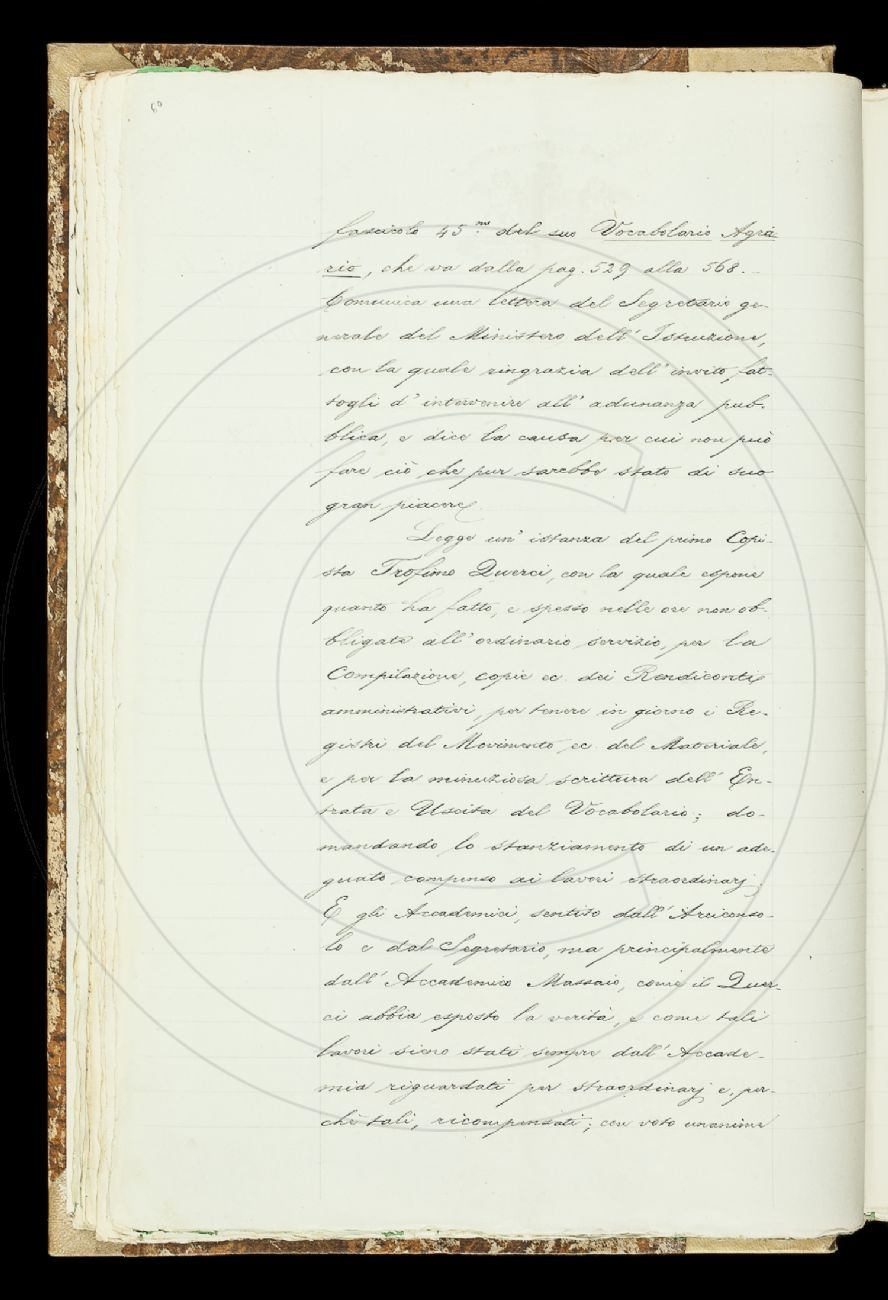 60
fascicolo 45.mo del suo Vocabolario Agra-
rio, che va dalla pag. 529 alla 568.
Comunica una lettera del Segretario ge-
nerale del Ministero dell' Istruzione,
con la quale ringrazia dell' invito fat-
togli d' intervenire all' adunanza pub-
blica, e dice la causa per cui non può
fare ciò che pur sarebbe stato di suo
gran piacere.
Legge un' istanza del primo Copi-
sta Trofimo Querci, con la quale espone
quanto ha fatto, e spesso nelle ore non ob-
bligate all' ordinario servizio, per la
Compilazione, copie ec. dei Rendiconti
amministrativi, per tenere in giorno i Re-
gistri del Movimento ec. del Materiale,
e per la minuziosa scrittura dell' En-
trata e Uscita del Vocabolario; do-
mandando lo stanziamento di un ade-
guato compenso ai lavori straordinarj;
E gli Accademici, sentito dall' Arciconso-
lo e dal Segretario, ma principalmente
dall' Accademico Massaio, come il Quer-
ci abbia esposto la verità, e come tali
lavori sieno stati sempre dall' Accade-
mia riguardati per straordinarj e, per-
chè tali, ricompensati; con voto unanime